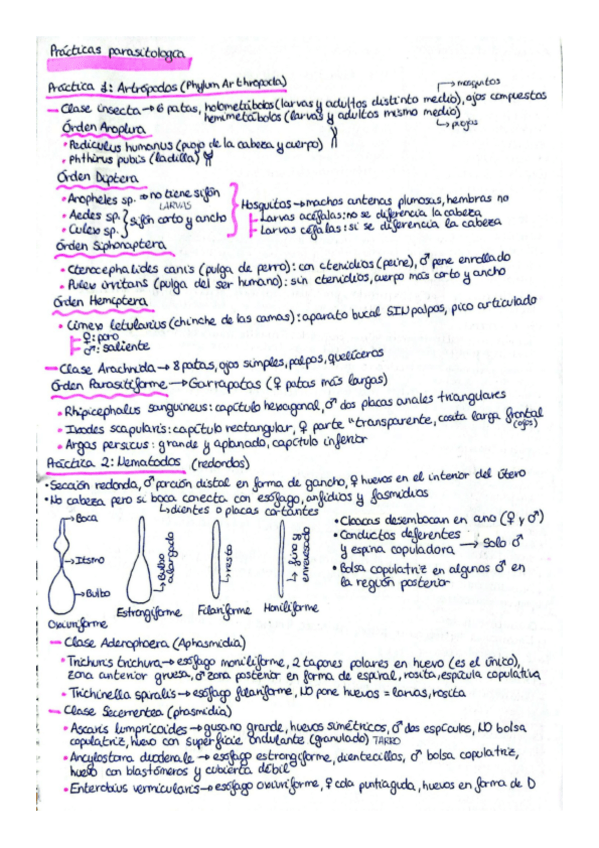 Prácticas parasitología
Práctica 1: Artrópodos (Phylum Arthropoda)
→ mosquitos
– Clase insecta → 6 patas, holometábolos (larvas y adultos distinto medio), ojos compuestos
hemimetábolos (larvas y adultos mismo medio)
↳ piojos
Órden Anoplura
• Pediculus humanus (piojo de la cabeza y cuerpo)
• Phthirus pubis (ladilla)
Órden Díptera
• Anopheles sp. → no tiene sifón
LARVAS
• Aedes sp. } sifón corto y ancho
• Culex sp.
Mosquitos → machos antenas plumosas, hembras no
Larvas acéfalas: no se diferencia la cabeza
Larvas céfalas: si se diferencia la cabeza
Órden Siphonaptera
• Ctenocephalides canis (pulga de perro): con ctenidios (peine), ♂ pene enrollado
• Pulex irritans (pulga del ser humano): sin ctenidios, cuerpo más corto y ancho
Órden Hemíptera
• Cimex letularius (chinche de las camas): aparato bucal SIN palpos, pico articulado
♀: poro
♂: saliente
– Clase Arachnida → 8 patas, ojos simples, palpos, quelíceros
Órden Parasitiforme → Garrapatas (♀ patas más largas)
• Rhipicephalus sanguineus: capítulo hexagonal, ♂ dos placas anales triangulares
• Ixodes scapularis: capítulo rectangular, ♀ parte " transparente, costa larga frontal
(ojos)
• Argas persicus: grande y aplanado, capítulo inferior
Práctica 2: Nematodos (redondos)
• Sección redonda, ♂ porción distal en forma de gancho, ♀ huevos en el interior del útero
• No cabeza pero si boca conecta con esófago, anfidios y fasmidios
↳ dientes o placas cortantes
→ Boca
→ Itsmo
→ Bulbo
Oxiuriforme
Bulbo alargado
Estrongiforme
recto
Filariforme
fino y enrevesado
Moniliforme
• Cloacas desembocan en ano (♀ y ♂)
• Conductos deferentes
y espina copuladora → Solo ♂
• Bolsa copulatriz en algunos ♂ en
la región posterior
– Clase Aderophoera (Aphasmidia)
• Trichuris trichura → esófago moniliforme, 2 tapones polares en huevo (es el único),
zona anterior gruesa, ♂ zona posterior en forma de espiral, rosita, espícula copulativa
• Trichinella spiralis → esófago filariforme, NO pone huevos = larvas, rosita
– Clase Secernentea (phasmidia)
• Ascaris lumpricoides → gusano grande, huevos simétricos, ♂ dos espículos, NO bolsa
copulatriz, huevo con superficie ondulante (granulado) TARRO
• Ancylostoma duodenale → esófago estrongiforme, dientecillos, ♂ bolsa copulatriz,
huevo con blastómeros y cubierta débil
• Enterobius vermicularis → esófago oxiuriforme, ♀ cola puntiaguda, huevos en forma de D